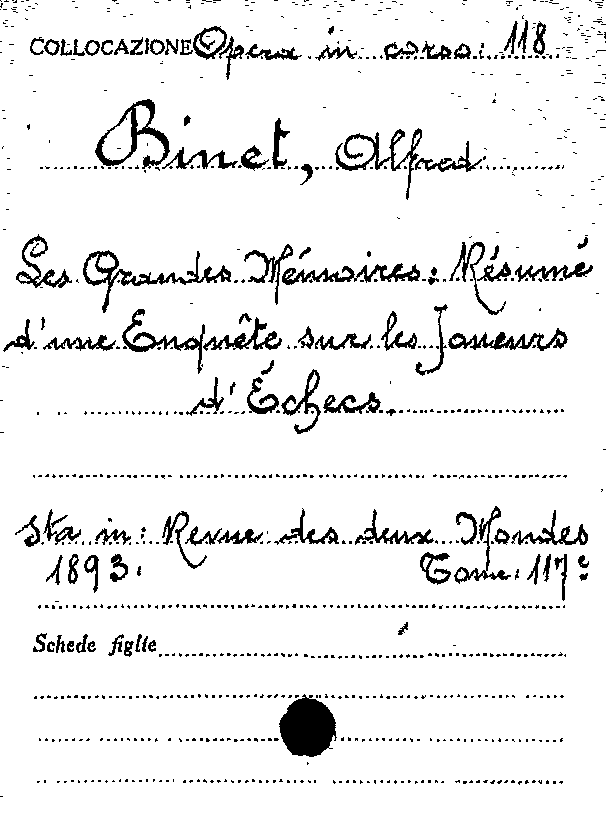 COLLOCAZIONE Opera in corso: 118
Binet, Alfred
Les Grandes Mémoires: Résumé
d'une Enquête sur les Joueurs
d'Échecs.
Sta in: Revue des deux Mondes
1893. Tome. 117e
Schede figlie